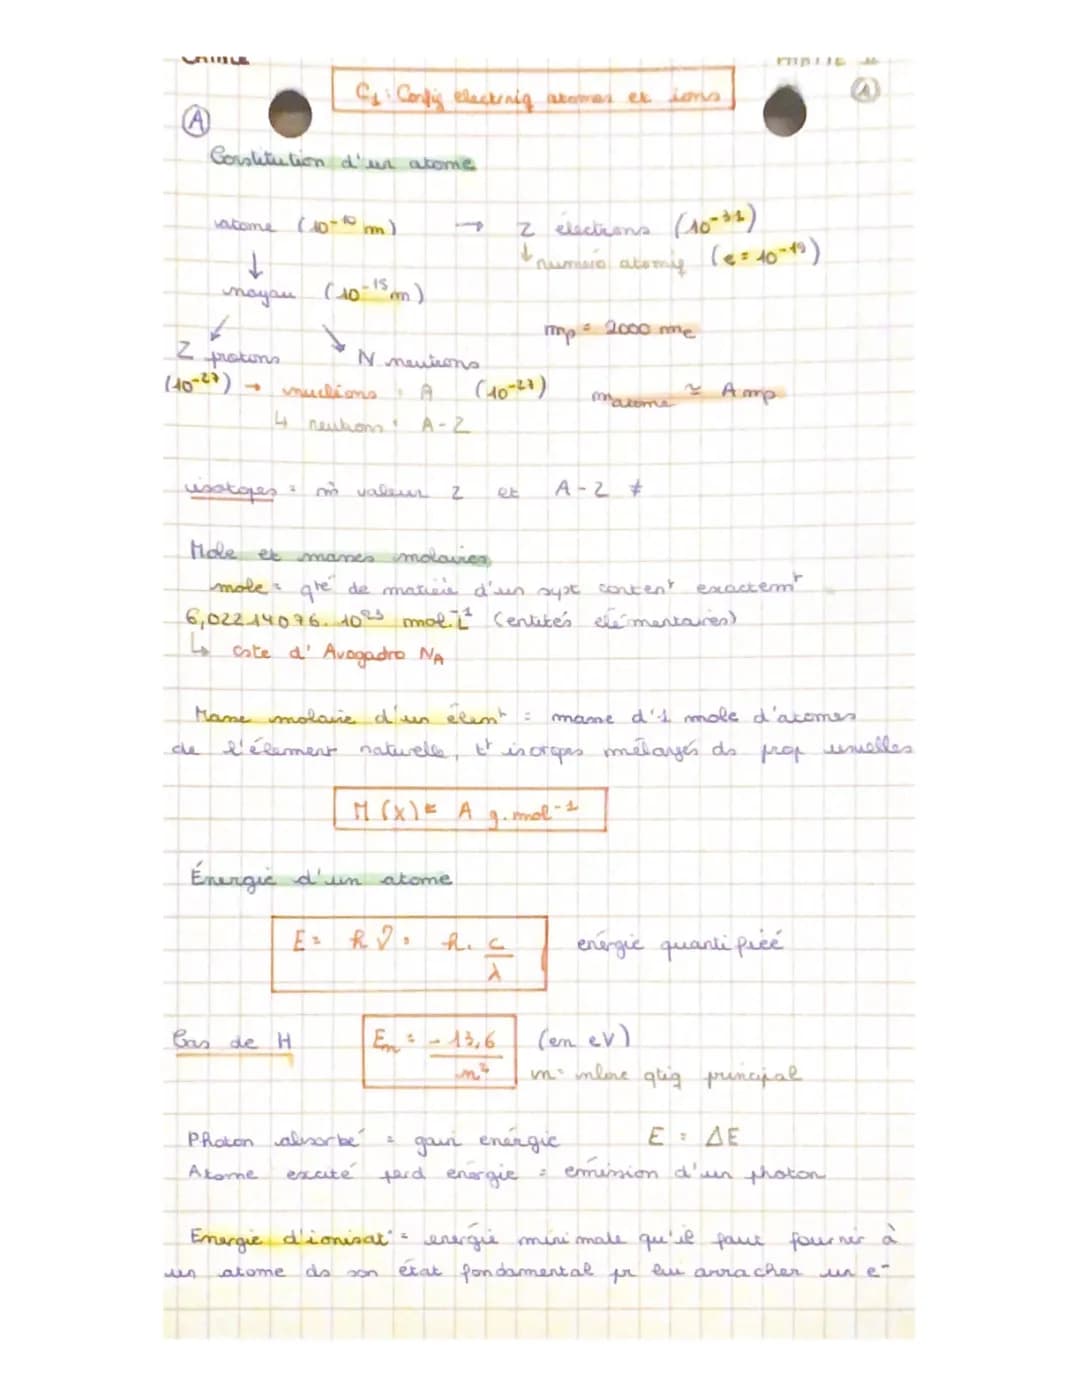 CHIMIE
A
C1 : Config electroniq atomes et ions
A
Constitution d'un atome
atome (10-10 m) → Z électrons (10-31)
↓ ↓ numéro atomiq (e = 10-19)
noyau (10-15 m)
↙ ↘ mp = 2000 me
Z protons N neutrons
(10-27) → nucléons : A (10-27) matome ≃ A mp
↳ neutrons : A-Z
isotopes = m̂ valeur Z et A-Z ≠
Mole et masses molaires
mole = qté de matière d'un syst content exactemt
6,02214076.1023 mol-1 (entités élémentaires)
↳ cste d'Avogadro NA
Masse molaire d'un élemt = masse d'1 mole d'atomes
de l'élement naturelle, tt isotopes mélangés ds prop usuelles
M(X) = A g.mol-1
Énergie d'un atome
E = hν = h. c/λ énergie quantifiée
Cas de H En = - 13,6/n² (en eV)
n = nbre qtiq principal
Photon absorbé = gain énergie E = ΔE
Atome excité perd énergie = émission d'un photon
Energie d'ionisat° = énergie minimale qu'il faut fournir à
un atome ds son état fondamental pr lui arracher un e-